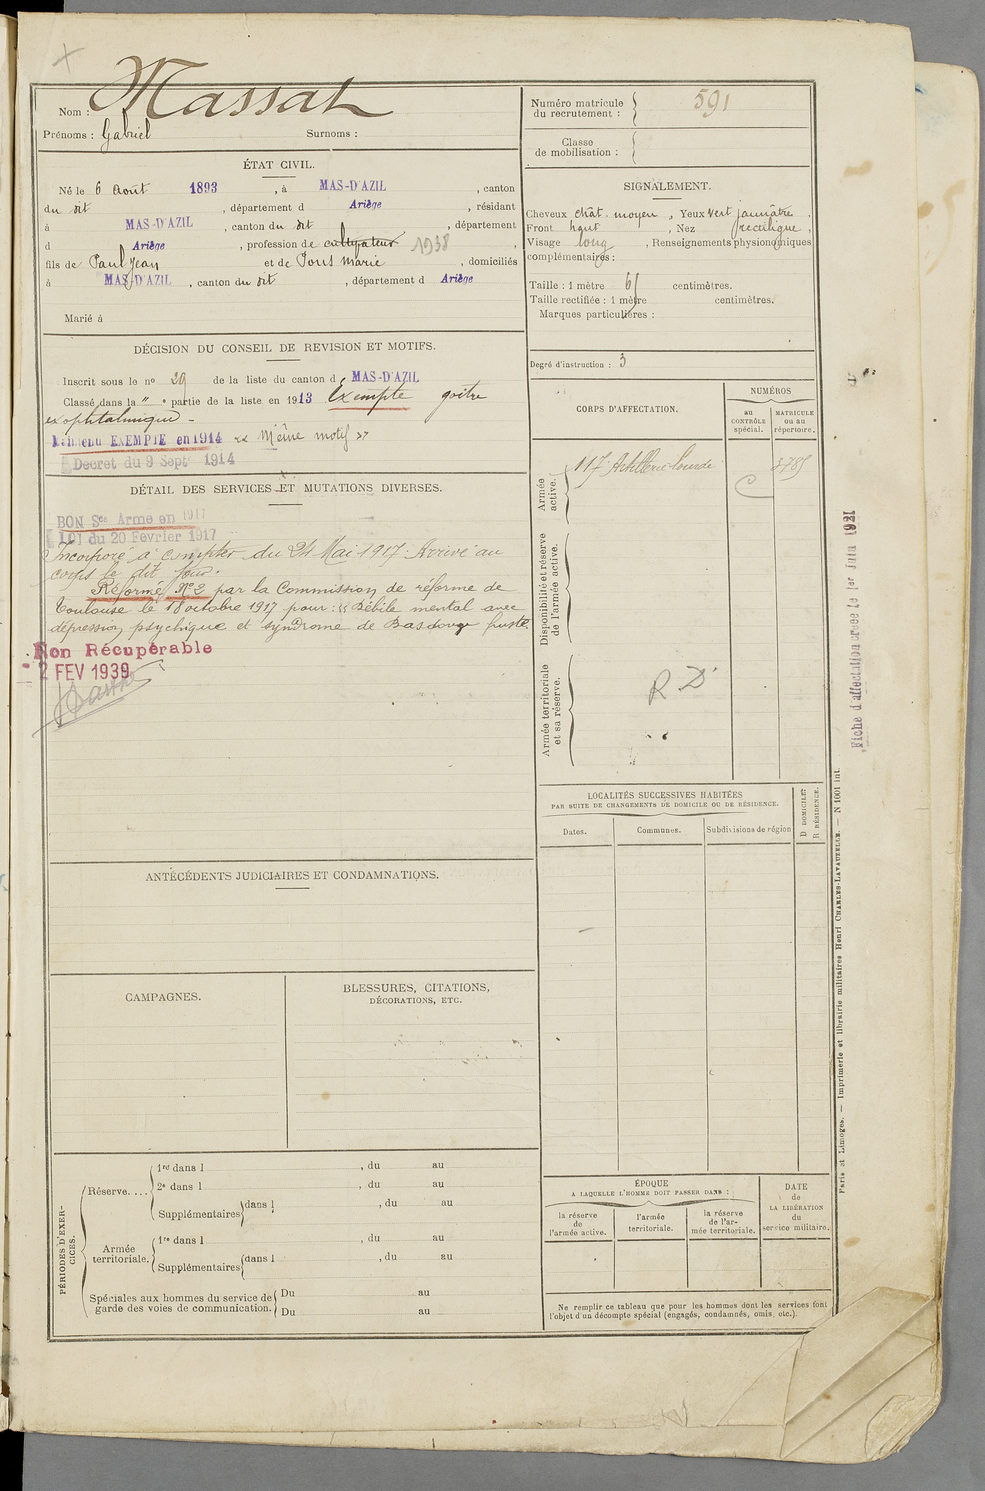 Nom : Massat
Prénoms : Gabriel Surnoms :
Numéro matricule du recrutement : 591
Classe de mobilisation :
ÉTAT CIVIL.
Né le 6 Août 1893, à MAS-D'AZIL, canton
du dit, département d Ariège, résidant
à MAS-D'AZIL, canton du dit, département
d Ariège, profession de cultivateur 1938,
fils de Paul Jean et de Pons Marie, domiciliés
à MAS-D'AZIL, canton du dit, département d Ariège
Marié à
SIGNALEMENT.
Cheveux chât. moyen, Yeux vert jaunâtre,
Front haut, Nez rectiligne,
Visage long, Renseignements physionomiques
complémentaires :
Taille : 1 mètre 65 centimètres.
Taille rectifiée : 1 mètre centimètres.
Marques particulières :
Degré d'instruction : 3
DÉCISION DU CONSEIL DE REVISION ET MOTIFS.
Inscrit sous le nº 29 de la liste du canton d MAS-D'AZIL
Classé dans la " e partie de la liste en 1913 Exempté goitre
exophtalmique -
Maintenu EXEMPTÉ en 1914 « Même motif »
Décret du 9 Septe 1914
DÉTAIL DES SERVICES ET MUTATIONS DIVERSES.
BON Sce Armé en 1917
LOI du 20 Février 1917
Incorporé à compter du 24 Mai 1917. Arrivé au
corps le dit jour.
Réformé Nº 2 par la Commission de réforme de
Toulouse le 18 octobre 1917 pour : « Débile mental avec
dépression psychique et syndrome de Basdow fruste
Non Récupérable
2 FEV 1939
CORPS D'AFFECTATION.
NUMÉROS
au CONTRÔLE spécial.
MATRICULE ou au répertoire.
Armée active.
117e Artillerie lourde 3785
Disponibilité et réserve de l'armée active.
Armée territoriale et sa réserve.
R D
LOCALITÉS SUCCESSIVES HABITÉES
PAR SUITE DE CHANGEMENTS DE DOMICILE OU DE RÉSIDENCE.
Dates. Communes. Subdivisions de région
D DOMICILE
R RÉSIDENCE.
ANTÉCÉDENTS JUDICIAIRES ET CONDAMNATIONS.
CAMPAGNES.
BLESSURES, CITATIONS,
DÉCORATIONS, ETC.
PÉRIODES D'EXERCICES.
Réserve....
1re dans l , du au
2e dans l , du au
Supplémentaires dans l , du au
Armée territoriale.
1re dans l , du au
Supplémentaires dans l , du au
Spéciales aux hommes du service de Du au
garde des voies de communication. Du au
ÉPOQUE
A LAQUELLE L'HOMME DOIT PASSER DANS :
la réserve de l'armée active.
l'armée territoriale.
la réserve de l'armée territoriale.
DATE de LA LIBÉRATION du service militaire.
Ne remplir ce tableau que pour les hommes dont les services font
l'objet d'un décompte spécial (engagés, condamnés, omis, etc.).
Fiche d'affectation créée le 1er Juin 1921
Paris et Limoges. — Imprimerie et librairie militaires Henri CHARLES-LAVAUZELLE. — N 1001 int.